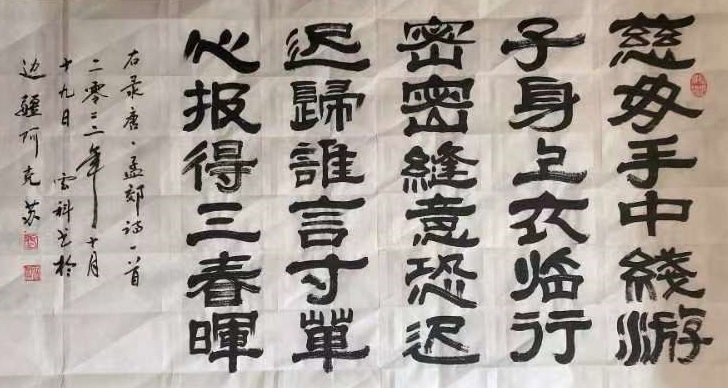 慈母手中綫游
子身上衣临行
密密縫意恐迟
迟歸誰言寸草
心报得三春暉
右录唐、孟郊诗一首
二零二二年十月
十九日云科书於
边疆阿克苏